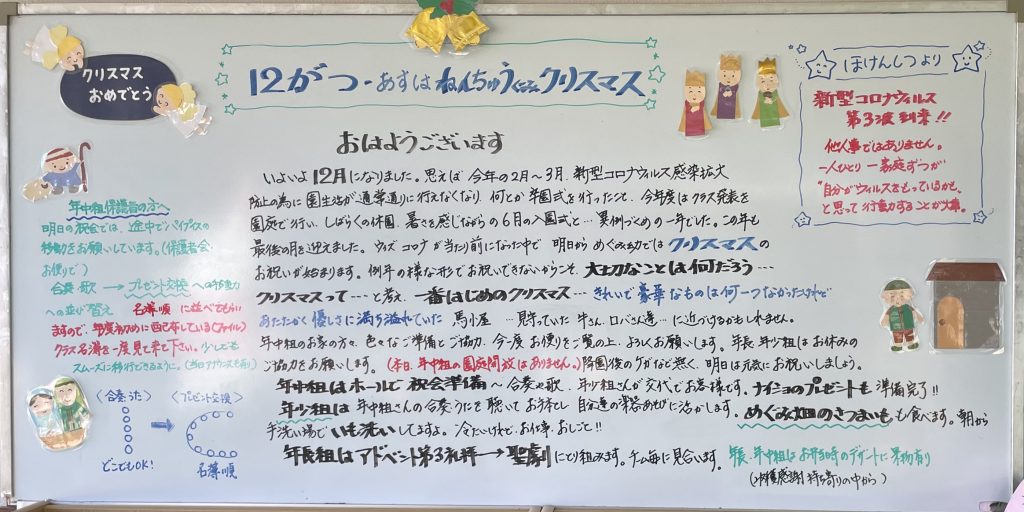 クリスマス
おめでとう
12がつ - あすは ねんちゅうぐみ クリスマス
おはようございます
いよいよ 12月になりました。思えば 今年の2月～3月、新型コロナウィルス感染拡大
防止の為に園生活が通常通りに行えなくなり、何とか卒園式を行ったこと、今年度はクラス発表を
園庭で行い、しばらくの休園、暑さを感じながらの6月の入園式と… 異例づくめの一年でした。この年も
最後の月を迎えました。ウィズコロナが当たり前になった中で 明日から めぐみでは クリスマスの
お祝いが始まります。例年の様な形でお祝いできないからこそ、大切なことは何だろう…
クリスマスって… と考え、一番はじめのクリスマス… きれいで豪華なものは何一つなかったけれど
あたたかく優しさに満ち溢れていた 馬小屋 … 見守っていた 牛さん、ロバさん達… に近づけるかもしれません。
年中組のお家の方々、色々なご準備とご協力、今一度 お便りをご覧の上、よろしくお願います。年長、年少組はお休みの
ご協力をお願います。(本日、年中組の園庭開放はありません。)降園後のケガなど無く、明日は元気にお祝いしましょう。
年中組はホールで 祝会準備～合奏や歌、年少組さんが交代でお客様です。ナイショのプレゼントも 準備完了!!
年少組は 年中組さんの合奏、うたを聴いて お手本とし 自分達の楽器あそびに活かします。めぐみ畑のさつまいもも食べます。朝から
手洗い場で いも洗いしてますよ。冷たいけれど、お仕事、おしごと!!
年長組はアドベント第3礼拝→聖劇にとり組みます。チーム毎に見合います。年長、年中組はお弁当時のデザートに果物有り
(収穫感謝 持ち寄りの中から)
年中組保護者の方へ
明日の祝会では、途中でパイプイスの
移動をお願いしています。(保護者会
お便りで)
合奏・歌 → プレゼント交換 への
への並び替え 名簿順に並べてもらい
ますので、年度初めに配布している(ファイル)
クラス名簿を一度見て来て下さい。少しでも
スムーズに移行できるように。(当日アナウンスも有り)
〈合奏うた〉 〈プレゼント交換〉
どこでもOK! 名簿順
ほけんしつより
新型コロナウィルス
第3波到来!!
他人事ではありません。
一人ひとり 一家庭ずつが
"自分がウィルスをもっているかも、
と思って行動することが大事。